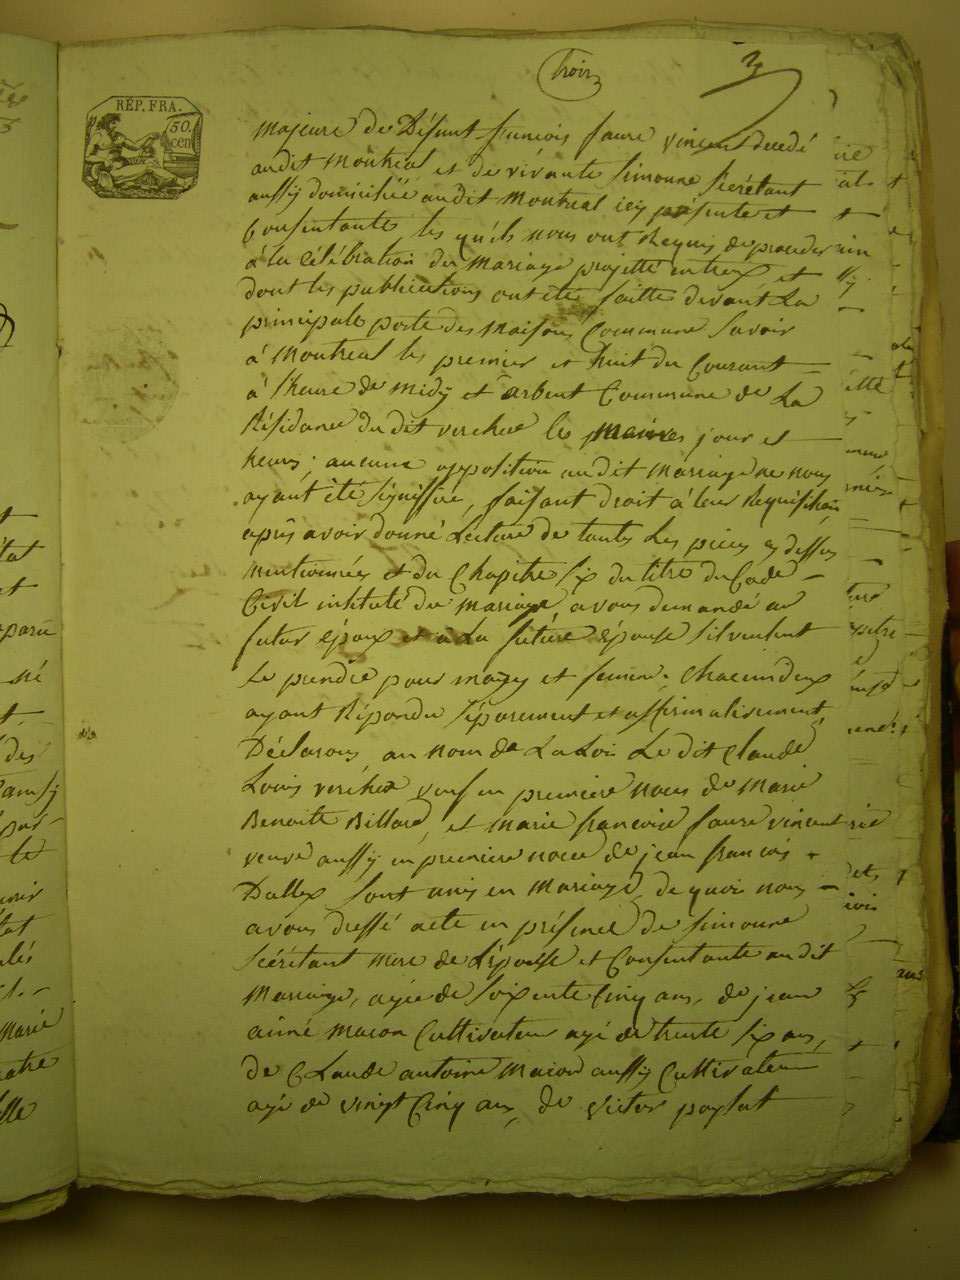 Trois
3
RÉP. FRA.
50.
cen
majeure de Défunt francois faure vincent decedé
audit Montreal, et de vivante Simoune Secrétant
aussy domiciliée audit Montreal icy présente et
Consentante les quels nous ont Requis de proceder
à la Célébration du Mariage projetté entreux et
dont les publications ont étés faittes devant La
principale porte des Maisons Commune Savoir
à Montreal les premier et huit du Courant
à l'heure de midy et arbent Commune de La
Résidance du dit verchere les memes jour et
heure; aucune opposition audit mariage ne nous
ayant été signiffiée, faisant droit à leur Requisition
aprês avoir donné Lecture de toutes Les pieces cy dessus
mentionnées et du Chapitre six du titre du Code
Civil intitulé du Mariage, avons demandé au
futur époux et à La future épouse s'il veulent
Se prendre pour mary et femme. Chacun deux
ayant Répondu séparement et affirmativement,
Déclarons, au nom de La Loi Le dit Claude
Louis verchere veuf en premiere noces de Marie
Benoite Billard, et marie francoise faure vincent
veuve aussy en premiere noce de jean francois
Dallex Sont unis en mariage, de quoi nous
avons dressé acte en présence de Simoune
Sécrétant mere de L'épouse et Consentante audit
Mariage, agée de soixente Cinq ans, de jean
aimé Macon Cultivateur agé de trente six ans,
de Claude antoine Macon aussy Cultivateur
agé de vingt Cinq ans, de victor poylat